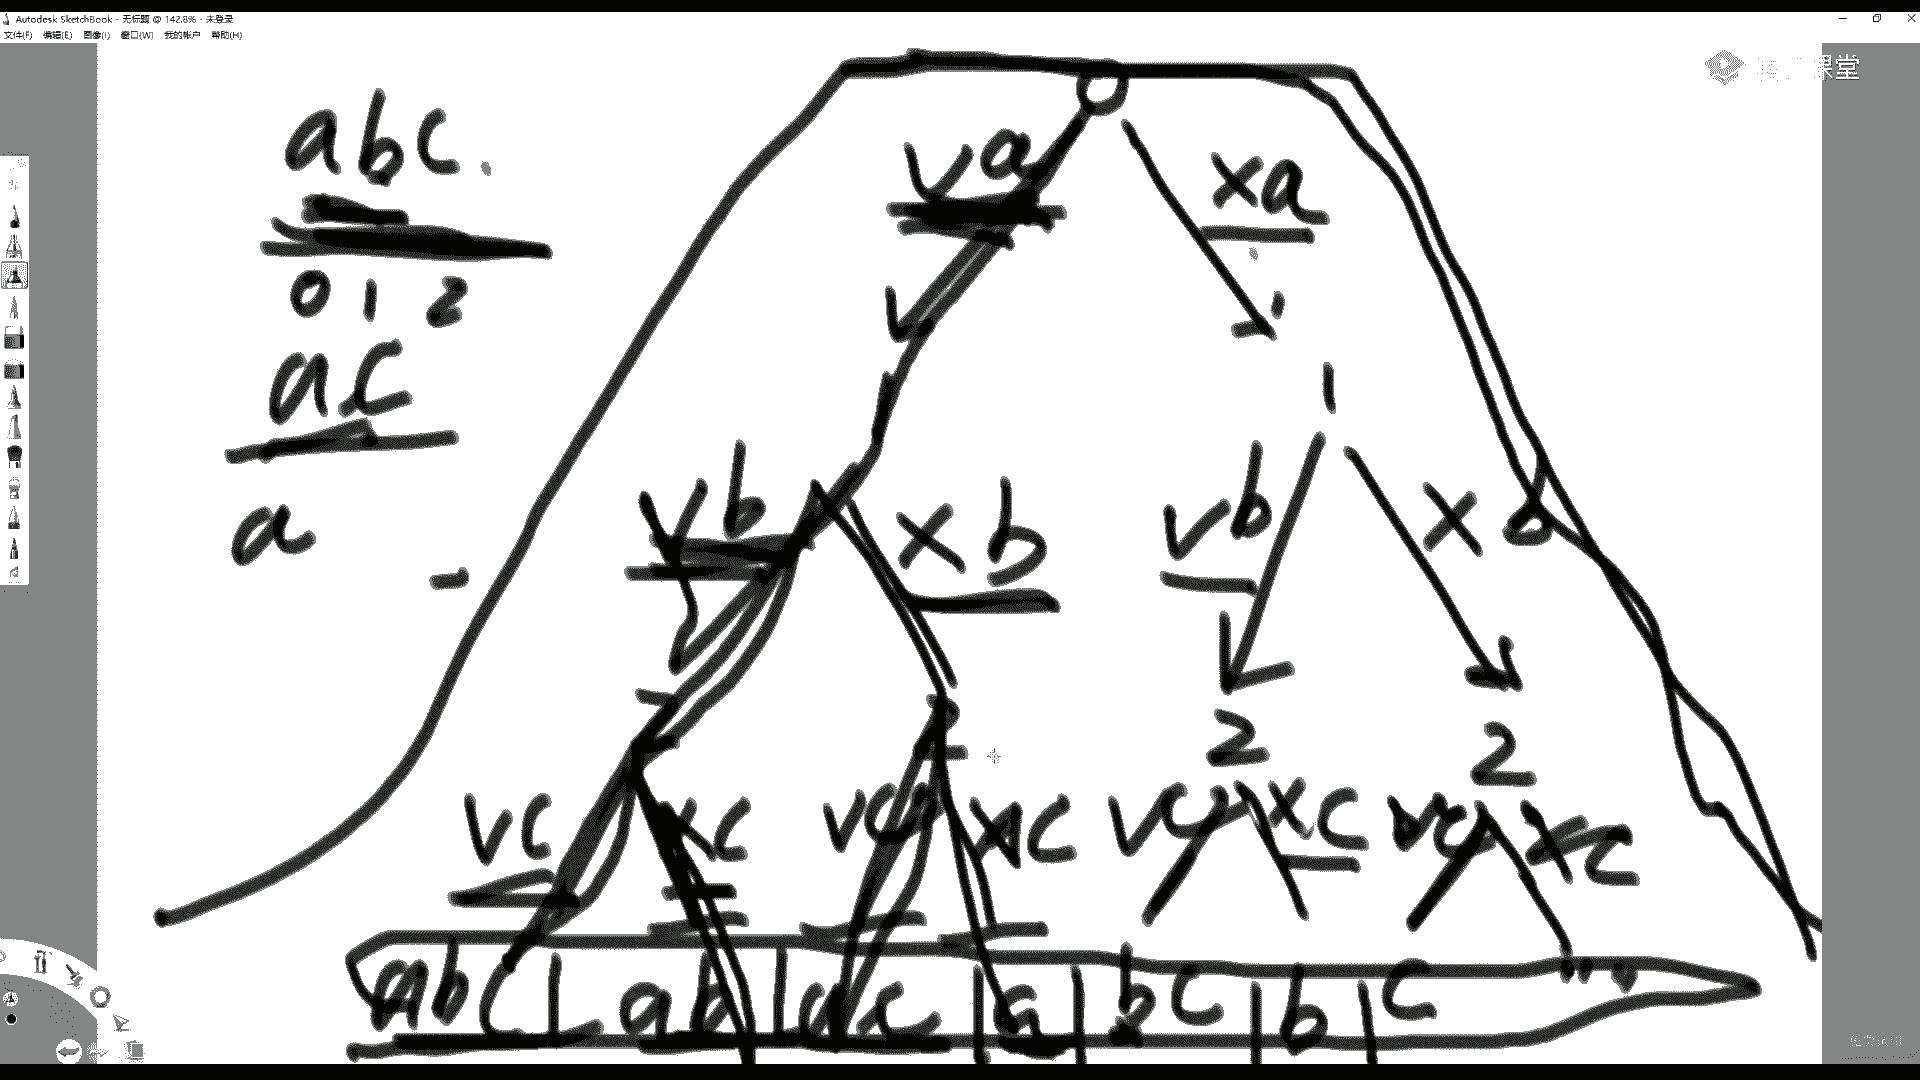 Autodesk SketchBook - 无标题 @ 142.8% - 未登录
文件(F) 编辑(E) 图像(I) 窗口(W) 我的帐户 帮助(H)
课堂
abc.
0 1 2
ac
a
0
va xa
1
vb xb vb x b
2 2 2 2
vc xc vc xc vc xc vc xc
abc | ab | ac | a | bc | b | c " "